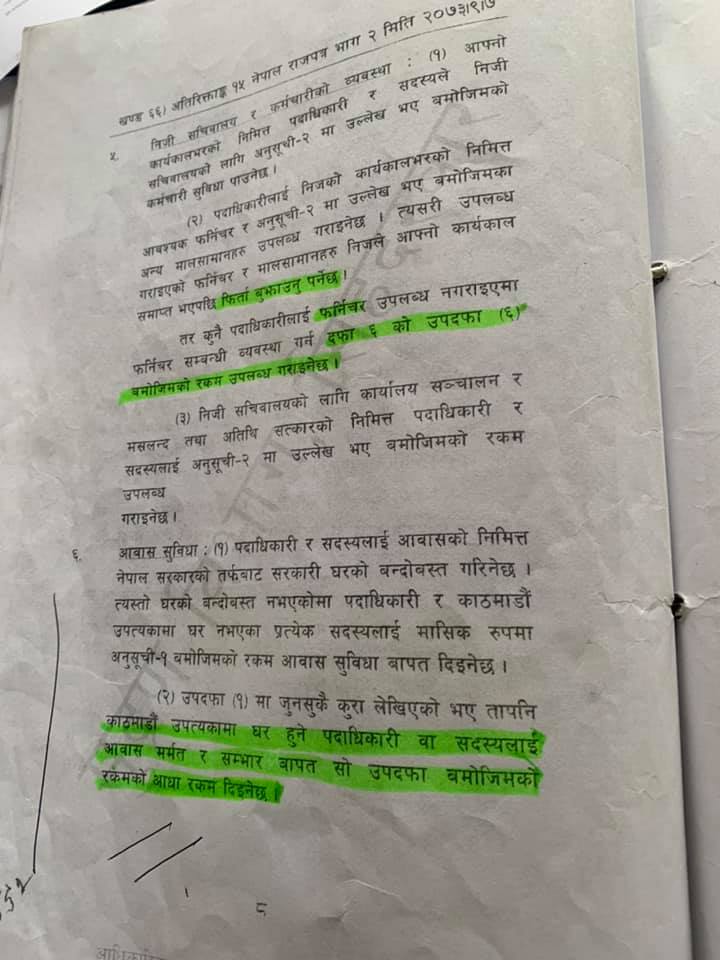 खण्ड ६६) अतिरिक्ताङ्क १५ नेपाल राजपत्र भाग २ मिति २०७३।९।७
५. निजी सचिवालय र कर्मचारीको व्यवस्था : (१) आफ्नो
कार्यकालभरको निमित्त पदाधिकारी र सदस्यले निजी
सचिवालयको लागि अनुसूची-२ मा उल्लेख भए बमोजिमको
कर्मचारी सुविधा पाउनेछ ।
(२) पदाधिकारीलाई निजको कार्यकालभरको निमित्त
आवश्यक फर्निचर र अनुसूची-२ मा उल्लेख भए बमोजिमका
अन्य मालसामानहरु उपलब्ध गराइनेछ । त्यसरी उपलब्ध
गराइएको फर्निचर र मालसामानहरु निजले आफ्नो कार्यकाल
समाप्त भएपछि फिर्ता बुझाउनु पर्नेछ ।
तर कुनै पदाधिकारीलाई फर्निचर उपलब्ध नगराइएमा
फर्निचर सम्बन्धी व्यवस्था गर्न दफा ६ को उपदफा (६)
बमोजिमको रकम उपलब्ध गराइनेछ ।
(३) निजी सचिवालयको लागि कार्यालय सञ्चालन र
मसलन्द तथा अतिथि सत्कारको निमित्त पदाधिकारी र
सदस्यलाई अनुसूची-२ मा उल्लेख भए बमोजिमको रकम
उपलब्ध
गराइनेछ ।
६. आवास सुविधा : (१) पदाधिकारी र सदस्यलाई आवासको निमित्त
नेपाल सरकारको तर्फबाट सरकारी घरको बन्दोबस्त गरिनेछ ।
त्यस्तो घरको बन्दोबस्त नभएकोमा पदाधिकारी र काठमाडौं
उपत्यकामा घर नभएका प्रत्येक सदस्यलाई मासिक रुपमा
अनुसूची-१ बमोजिमको रकम आवास सुविधा बापत दिइनेछ ।
(२) उपदफा (१) मा जुनसुकै कुरा लेखिएको भए तापनि
काठमाडौं उपत्यकामा घर हुने पदाधिकारी वा सदस्यलाई
आवास मर्मत र सम्भार बापत सो उपदफा बमोजिमको
रकमको आधा रकम दिइनेछ ।
८